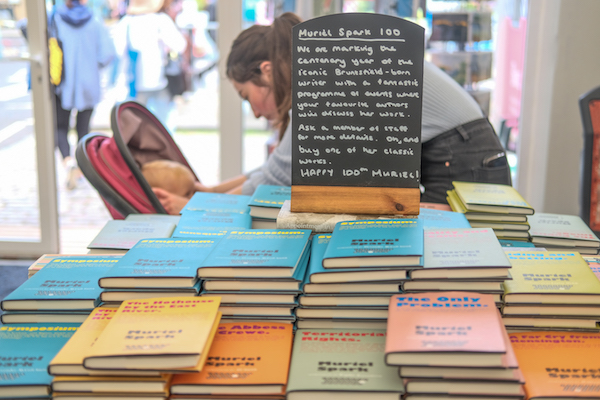 Muriel Spark 100
We are marking the
centenary year of the
iconic Bruntsfield-born
writer with a fantastic
programme of events where
your favourite authors
will discuss her work.
Ask a member of staff
for more details. Oh, and
buy one of her classic
works.
HAPPY 100th MURIEL!
Symposium.
Muriel Spark
Symposium.
Muriel Spark
Symposium.
Muriel Spark
Symposium.
Muriel Spark
Muriel Spark
Muriel Spark
The Hothouse
by the East River.
Muriel Spark
The Only
Problem.
Muriel Spark
Symposium.
Muriel Spark
Abbess
Crewe.
Muriel Spark
Territorial
Rights.
Muriel Spark
A Far Cry from
Kensington.
Muriel Spark